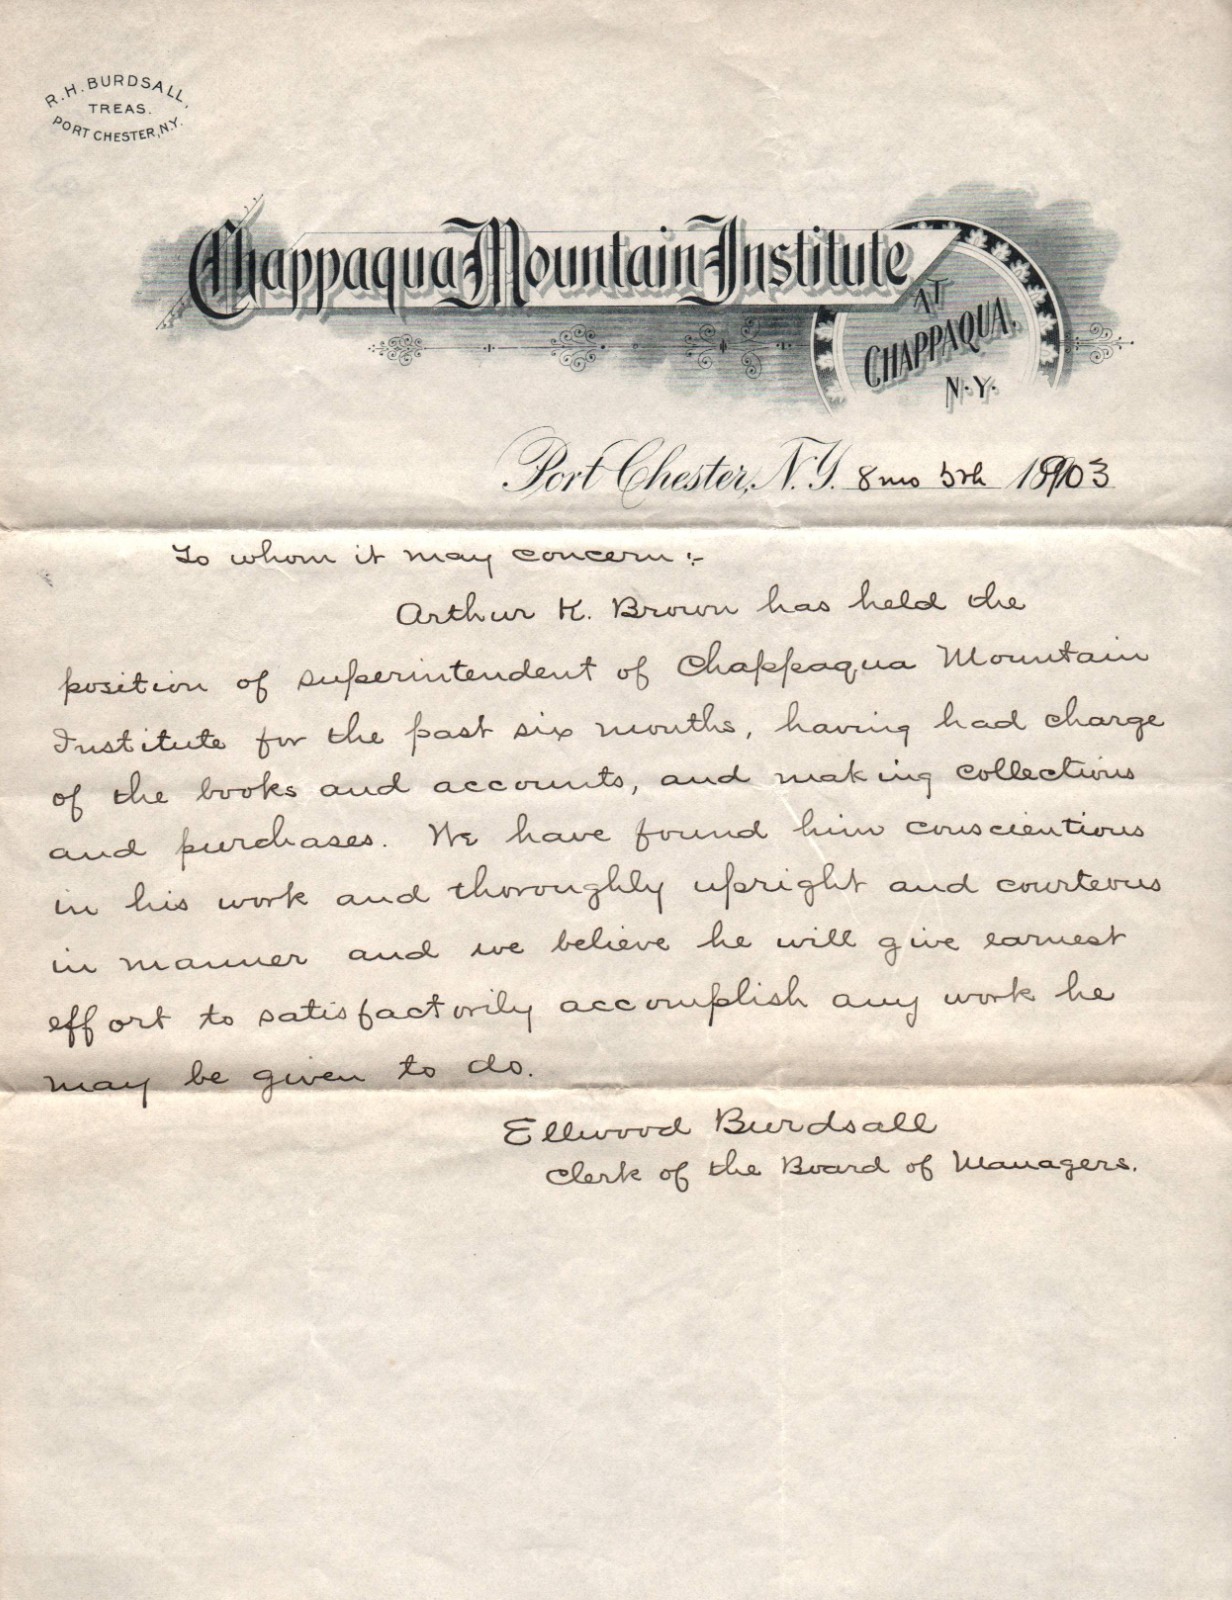 R. H. BURDSALL,
TREAS.
PORT CHESTER, N.Y.
Chappaqua Mountain Institute
AT
CHAPPAQUA,
N.Y.
Port Chester, N.Y. 8mo 5th 1903
To whom it may concern:-
Arthur K. Brown has held the
position of superintendent of Chappaqua Mountain
Institute for the past six months, having had charge
of the books and accounts, and making collections
and purchases. We have found him conscientious
in his work and thoroughly upright and courteous
in manner and we believe he will give earnest
effort to satisfactorily accomplish any work he
may be given to do.
Ellwood Burdsall
Clerk of the Board of Managers.